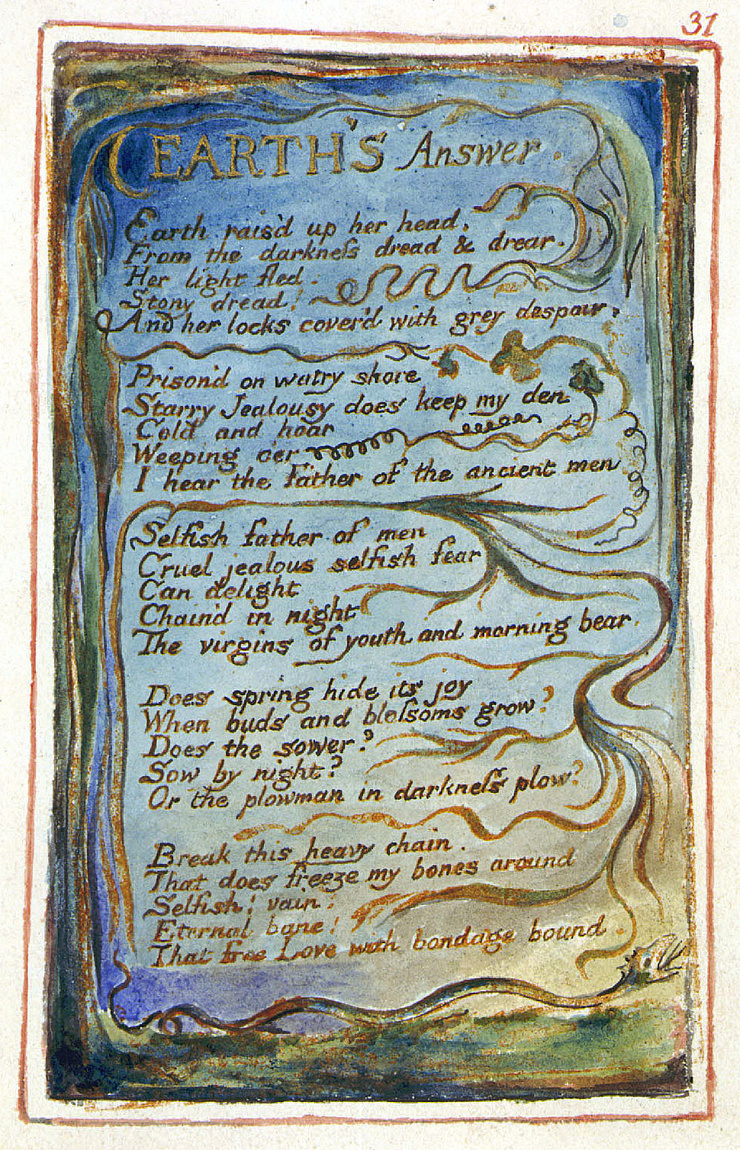 31
EARTH'S Answer.
Earth rais'd up her head,
From the darkneſs dread & drear.
Her light fled.
Stony dread!
And her locks cover'd with grey despair.
Prison'd on watry shore
Starry Jealousy does keep my den
Cold and hoar
Weeping o'er
I hear the father of the ancient men
Selfish father of men
Cruel jealous selfish fear
Can delight
Chain'd in night
The virgins of youth and morning bear.
Does spring hide its joy
When buds and bloſsoms grow?
Does the sower?
Sow by night?
Or the plowman in darkneſs plow?
Break this heavy chain.
That does freeze my bones around
Selfish! vain!
Eternal bane!
That free Love with bondage bound.